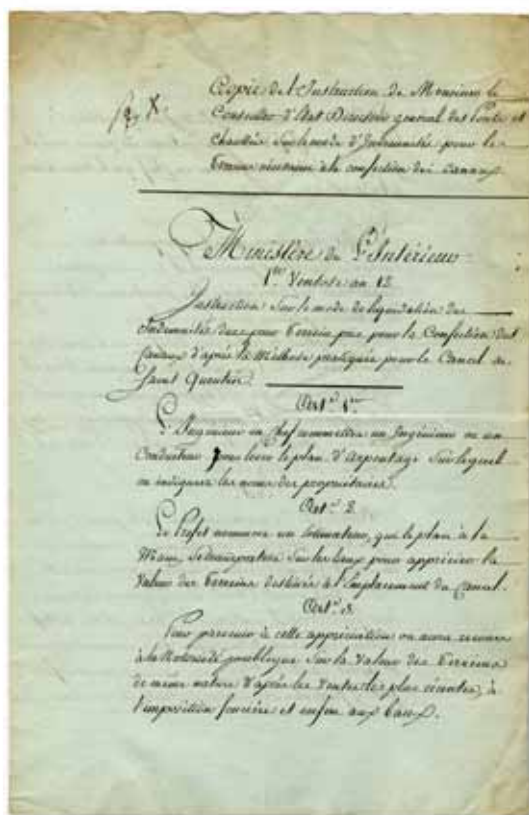 Copie de l'Instruction de Monsieur le
Conseiller d'Etat Directeur general des Ponts et
chaussées Sur le mode d'Indemnités pour les
terreins nécessaires à la confection des Canaux.
Ministère de l'Intérieur
1er Ventose an 13.
Instruction Sur le mode de liquidation des
Indemnités dues pour terrein pris pour la Confection des
Canaux d'après la Méthode pratiquée pour le Canal de
Saint Quentin.
Art. 1er
L'Ingénieur en Chef commettra un Ingénieur ou un
Conducteur pour lever le plan d'Arpentage Sur lequel
on indiquera les noms des propriétaires.
Art. 2.
Le Préfet nommera un Estimateur, qui le plan à la
Main, Se transportera Sur les lieux pour apprécier la
Valeur des terreins destinés à l'Emplacement du Canal.
Art. 3.
Pour parvenir à cette appréciation on aura recours
à la Notoriété publique Sur la valeur des terreins
de même nature d'après les Ventes les plus récentes, à
l'imposition foncière et enfin aux baux.